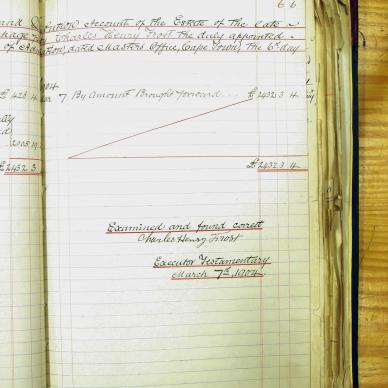 66
ution Account of the Estate of the late
Charles Henry Frost the duly appointed
dated Masters Office, Cape Town, The 6th day
1904
£ 423 4
7 By Amount Brought forward £ 2432 3 4
£2432 3
£ 2432 3 4
Examined and found correct
Charles Henry Frost
Executor Testamentary
March 7th, 1904